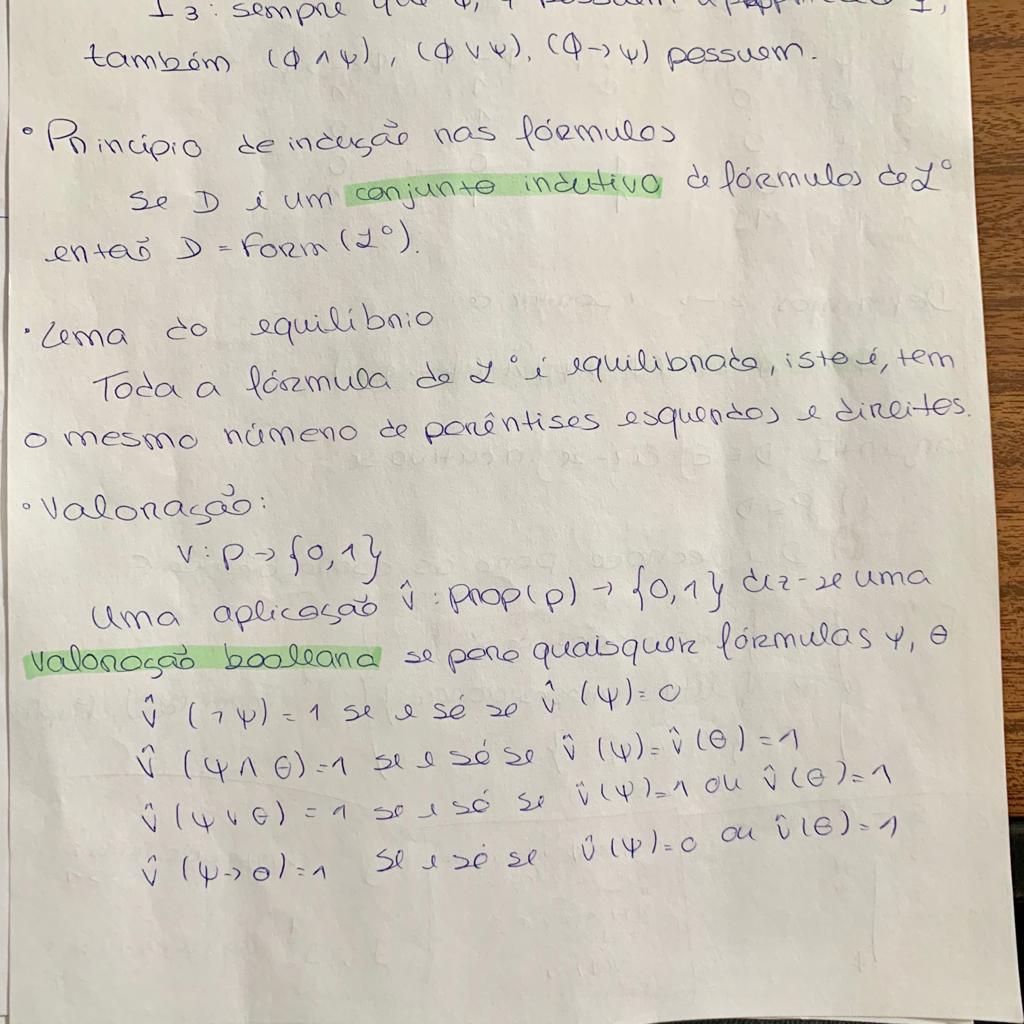 I3: sempre que φ, ψ possuem a propriedade I,
também (φ ∧ ψ), (φ ∨ ψ), (φ → ψ) possuem.
• Princípio de indução nas fórmulas
Se D é um conjunto indutivo de fórmulas de L°
então D = Form (L°).
• Lema do equilíbrio
Toda a fórmula de L° é equilibrada, isto é, tem
o mesmo número de parêntises esquerdos e direitos.
• Valoração:
v: P → {0,1}
Uma aplicação v̂ : Prop(p) → {0,1} diz-se uma
valoração booleana se para quaisquer fórmulas ψ, θ
v̂ (¬ψ) = 1 se e só se v̂ (ψ) = 0
v̂ (ψ ∧ θ) = 1 se e só se v̂ (ψ) = v̂ (θ) = 1
v̂ (ψ ∨ θ) = 1 se e só se v̂ (ψ) = 1 ou v̂ (θ) = 1
v̂ (ψ → θ) = 1 se e só se v̂ (ψ) = 0 ou v̂ (θ) = 1